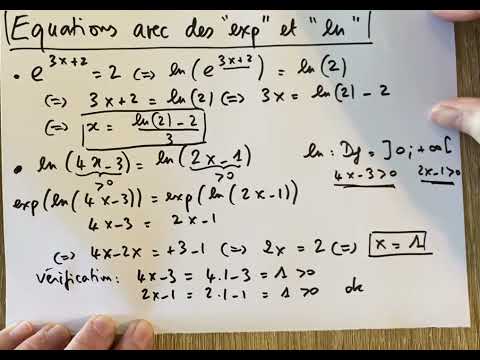 Equations avec des "exp" et "ln"
• e^(3x+2) = 2 (=) ln(e^(3x+2)) = ln(2)
(=) 3x+2 = ln(2) (=) 3x = ln(2) - 2
(=) x = (ln(2) - 2)/3
• ln(4x-3) = ln(2x-1) ln : Df = ]0;+∞[
>0 >0 4x-3>0 2x-1>0
exp(ln(4x-3)) = exp(ln(2x-1))
4x-3 = 2x-1
(=) 4x-2x = +3-1 (=) 2x = 2 (=) x = 1
Vérification: 4x-3 = 4.1-3 = 1 >0
2x-1 = 2.1-1 = 1 >0 ok